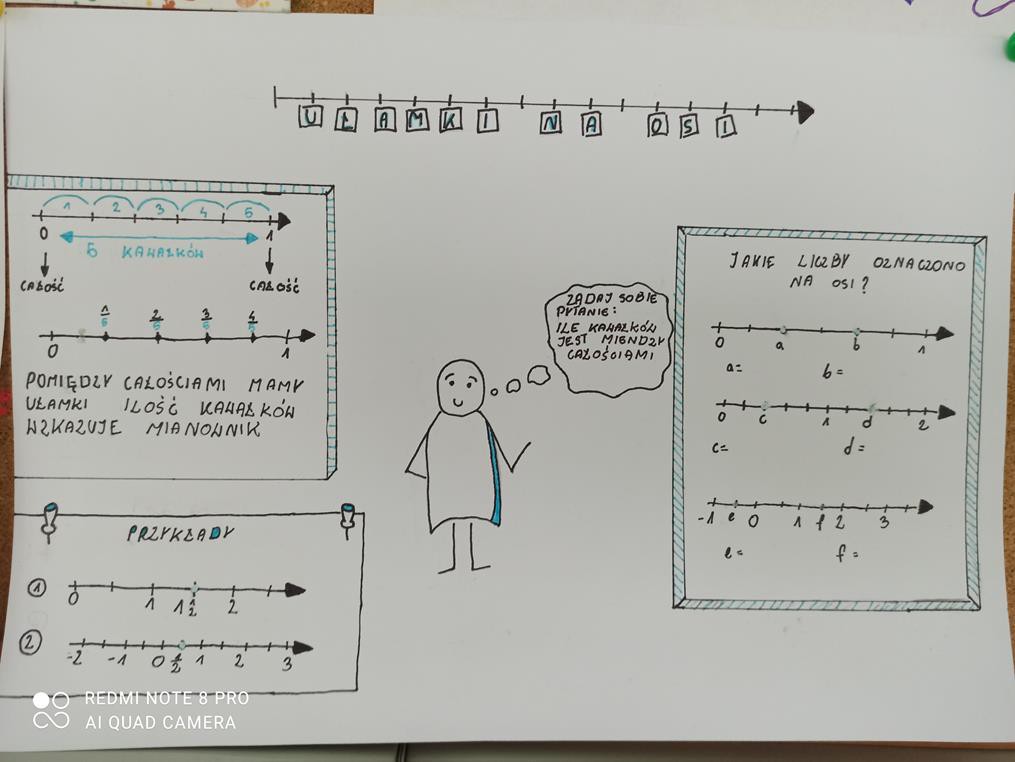 UŁAMKI NA OSI
1 2 3 4 5
0 1
5 KAWAŁKÓW
CAŁOŚĆ CAŁOŚĆ
1/5 2/5 3/5 4/5
0 1
POMIĘDZY CAŁOŚCIAMI MAMY
UŁAMKI ILOŚĆ KAWAŁKÓW
WZKAZUJE MIANOWNIK
PRZYKŁADY
1
0 1 1 1/2 2
2
-2 -1 0 1/2 1 2 3
ZADAJ SOBIE
PYTANIE:
ILE KAWAŁKÓW
JEST MIENDZY
CAŁOŚCIAMI
JAKIE LICZBY OZNACZONO
NA OSI?
0 a b 1
a= b=
0 c 1 d 2
c= d=
-1 e 0 1 f 2 3
e= f=
REDMI NOTE 8 PRO
AI QUAD CAMERA